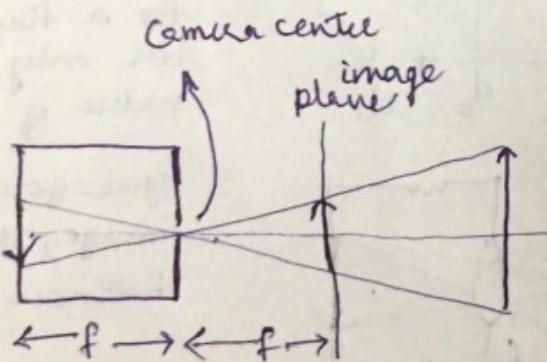 Camera centre
image
plane
f f